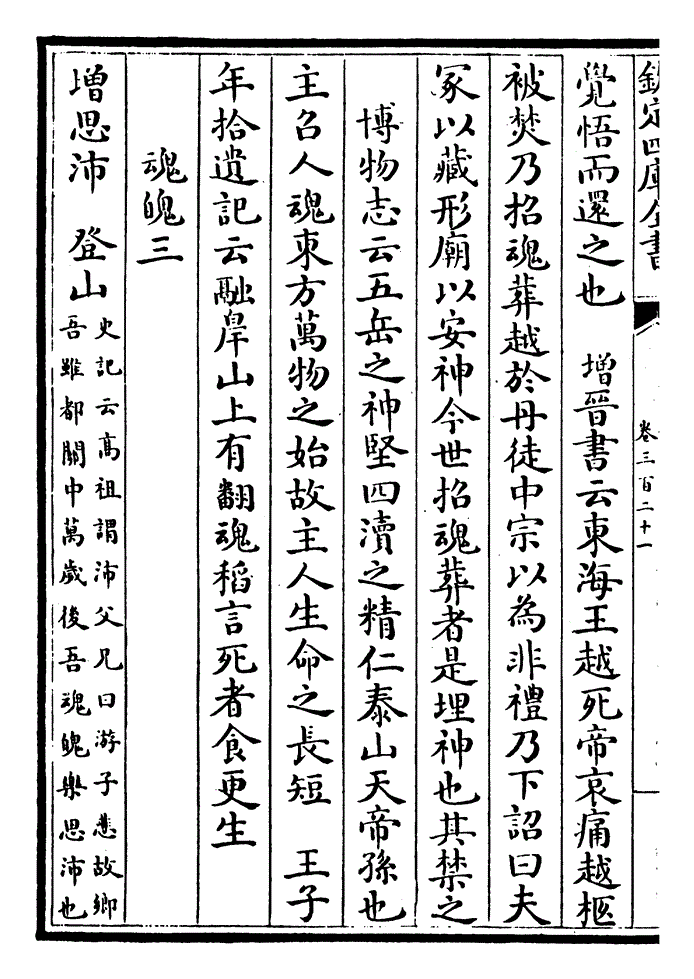 欽定四庫全書
卷三百二十一
覺悟而還之也　增晉書云東海王越死帝哀痛越柩
被焚乃招魂葬越於丹徒中宗以為非禮乃下詔曰夫
冢以藏形廟以安神今世招魂葬者是埋神也其禁之
博物志云五岳之神堅四瀆之精仁泰山天帝孫也
主召人魂東方萬物之始故主人生命之長短　王子
年拾遺記云融皐山上有翻魂稻言死者食更生
魂魄三
增思沛　登山史記云高祖謂沛父兄曰游子悲故鄉
吾雖都關中萬歲後吾魂魄樂思沛也